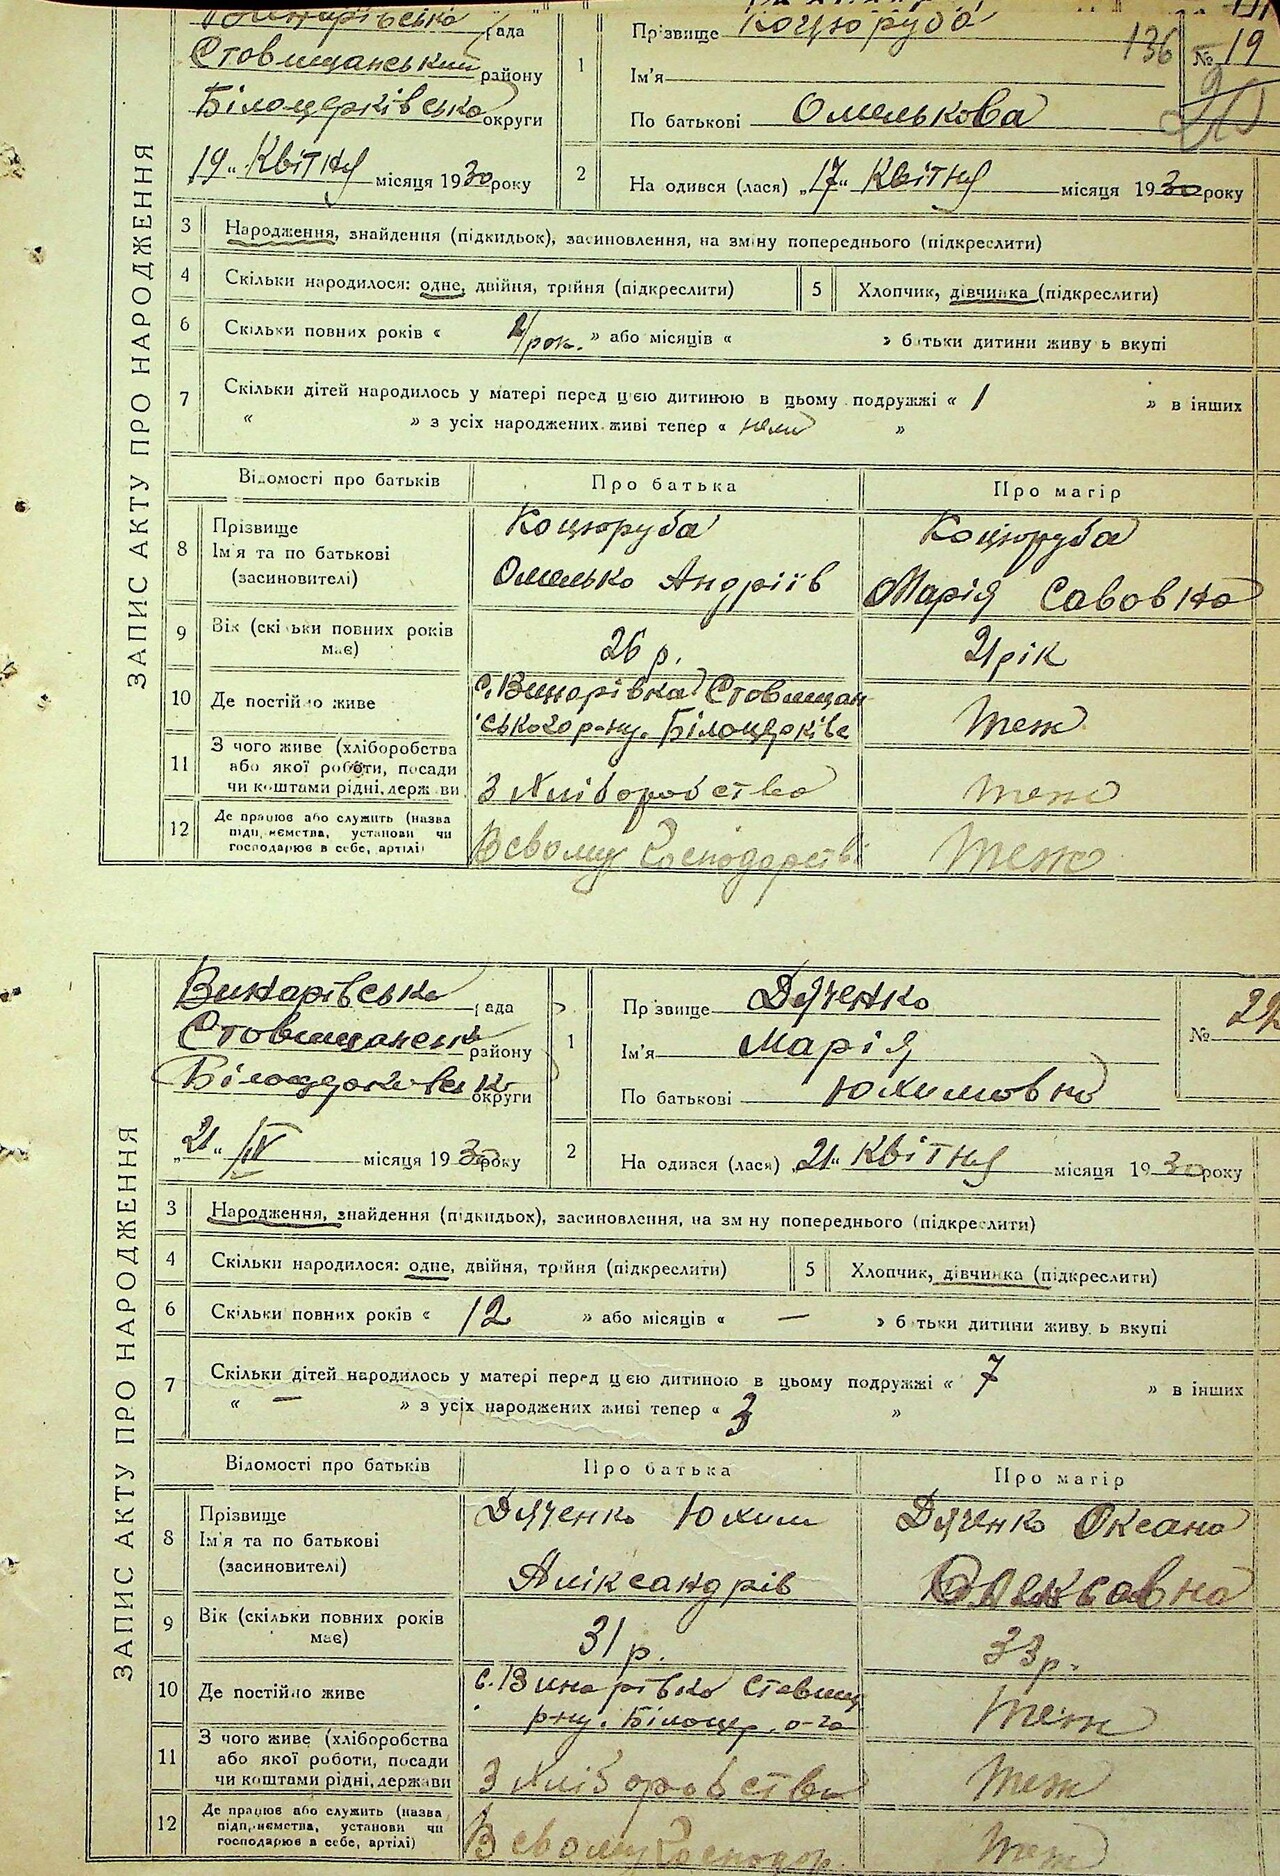 ЗАПИС АКТУ ПРО НАРОДЖЕННЯ
рада
Стовищанський району
Білоцерківсько округи
„19“ Квітня місяця 1930 року
1
Прізвище Коцюруба
Ім'я
По батькові Омелькова
136
№ 19
20
2
Народився (лася) „17“ Квітня місяця 1930 року
3 Народження, знайдення (підкидьок), засиновлення, на зміну попереднього (підкреслити)
4 Скільки народилося: одне, двійня, трійня (підкреслити) 5 Хлопчик, дівчинка (підкреслити)
6 Скільки повних років « рок. » або місяців « » батьки дитини живуть вкупі
7 Скільки дітей народилось у матері перед цією дитиною в цьому подружжі « 1 » в інших
« » з усіх народжених живі тепер « нема »
Відомості про батьків Про батька Про матір
8 Прізвище Коцюруба Коцюруба
Ім'я та по батькові
(засиновителі) Омелько Андріїв Марія Савовна
9 Вік (скільки повних років має) 26 р. 21 рік
10 Де постійно живе с. Винарівка Стовищан
ського р-ну. Білоцерків Теж
11 З чого живе (хліборобства
або якої роботи, посади
чи коштами рідні, держави З хліборобства теж
12 Де працює або служить (назва
підприємства, установи чи
господарює в себе, артілі) В свому Господарстві Теж
ЗАПИС АКТУ ПРО НАРОДЖЕННЯ
Винарівська рада
Стовищанськ району
Білоцерківськ округи
„21“ IV місяця 1930 року
1
Прізвище Дяченко
Ім'я Марія
По батькові Юхимовна
№ 22
2
Народився (лася) „21“ Квітня місяця 1930 року
3 Народження, знайдення (підкидьок), засиновлення, на зміну попереднього (підкреслити)
4 Скільки народилося: одне, двійня, трійня (підкреслити) 5 Хлопчик, дівчинка (підкреслити)
6 Скільки повних років « 12 » або місяців « — » батьки дитини живуть вкупі
7 Скільки дітей народилось у матері перед цією дитиною в цьому подружжі « 7 » в інших
« — » з усіх народжених живі тепер « 3 »
Відомості про батьків Про батька Про матір
8 Прізвище Дяченко Юхим Дяченко Оксана
Ім'я та по батькові
(засиновителі) Аліксандрів Олексовна
9 Вік (скільки повних років має) 31 р. 33 р.
10 Де постійно живе с. Винарівка Ставищ
р-ну. Білоцер. о-га Теж
11 З чого живе (хліборобства
або якої роботи, посади
чи коштами рідні, держави З хліборобства Теж
12 Де працює або служить (назва
підприємства, установи чи
господарює в себе, артілі) В свому Господар. Теж